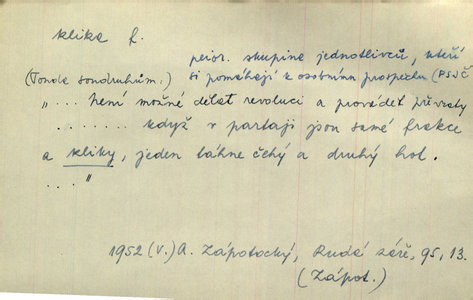 klika f.
pejor. skupina jednotlivců, kteří
(Tonda soudruhům:) si pomáhají k osobnímu prospěchu (PSJČ
„.... není možné dělat revoluci a provádět převraty
........ když v partaji jsou samé frakce
a kliky, jeden táhne čehý a druhý hot.
...."
1952 (V.) A. Zápotocký, Rudá záře, 95, 13.
(Zápot.)